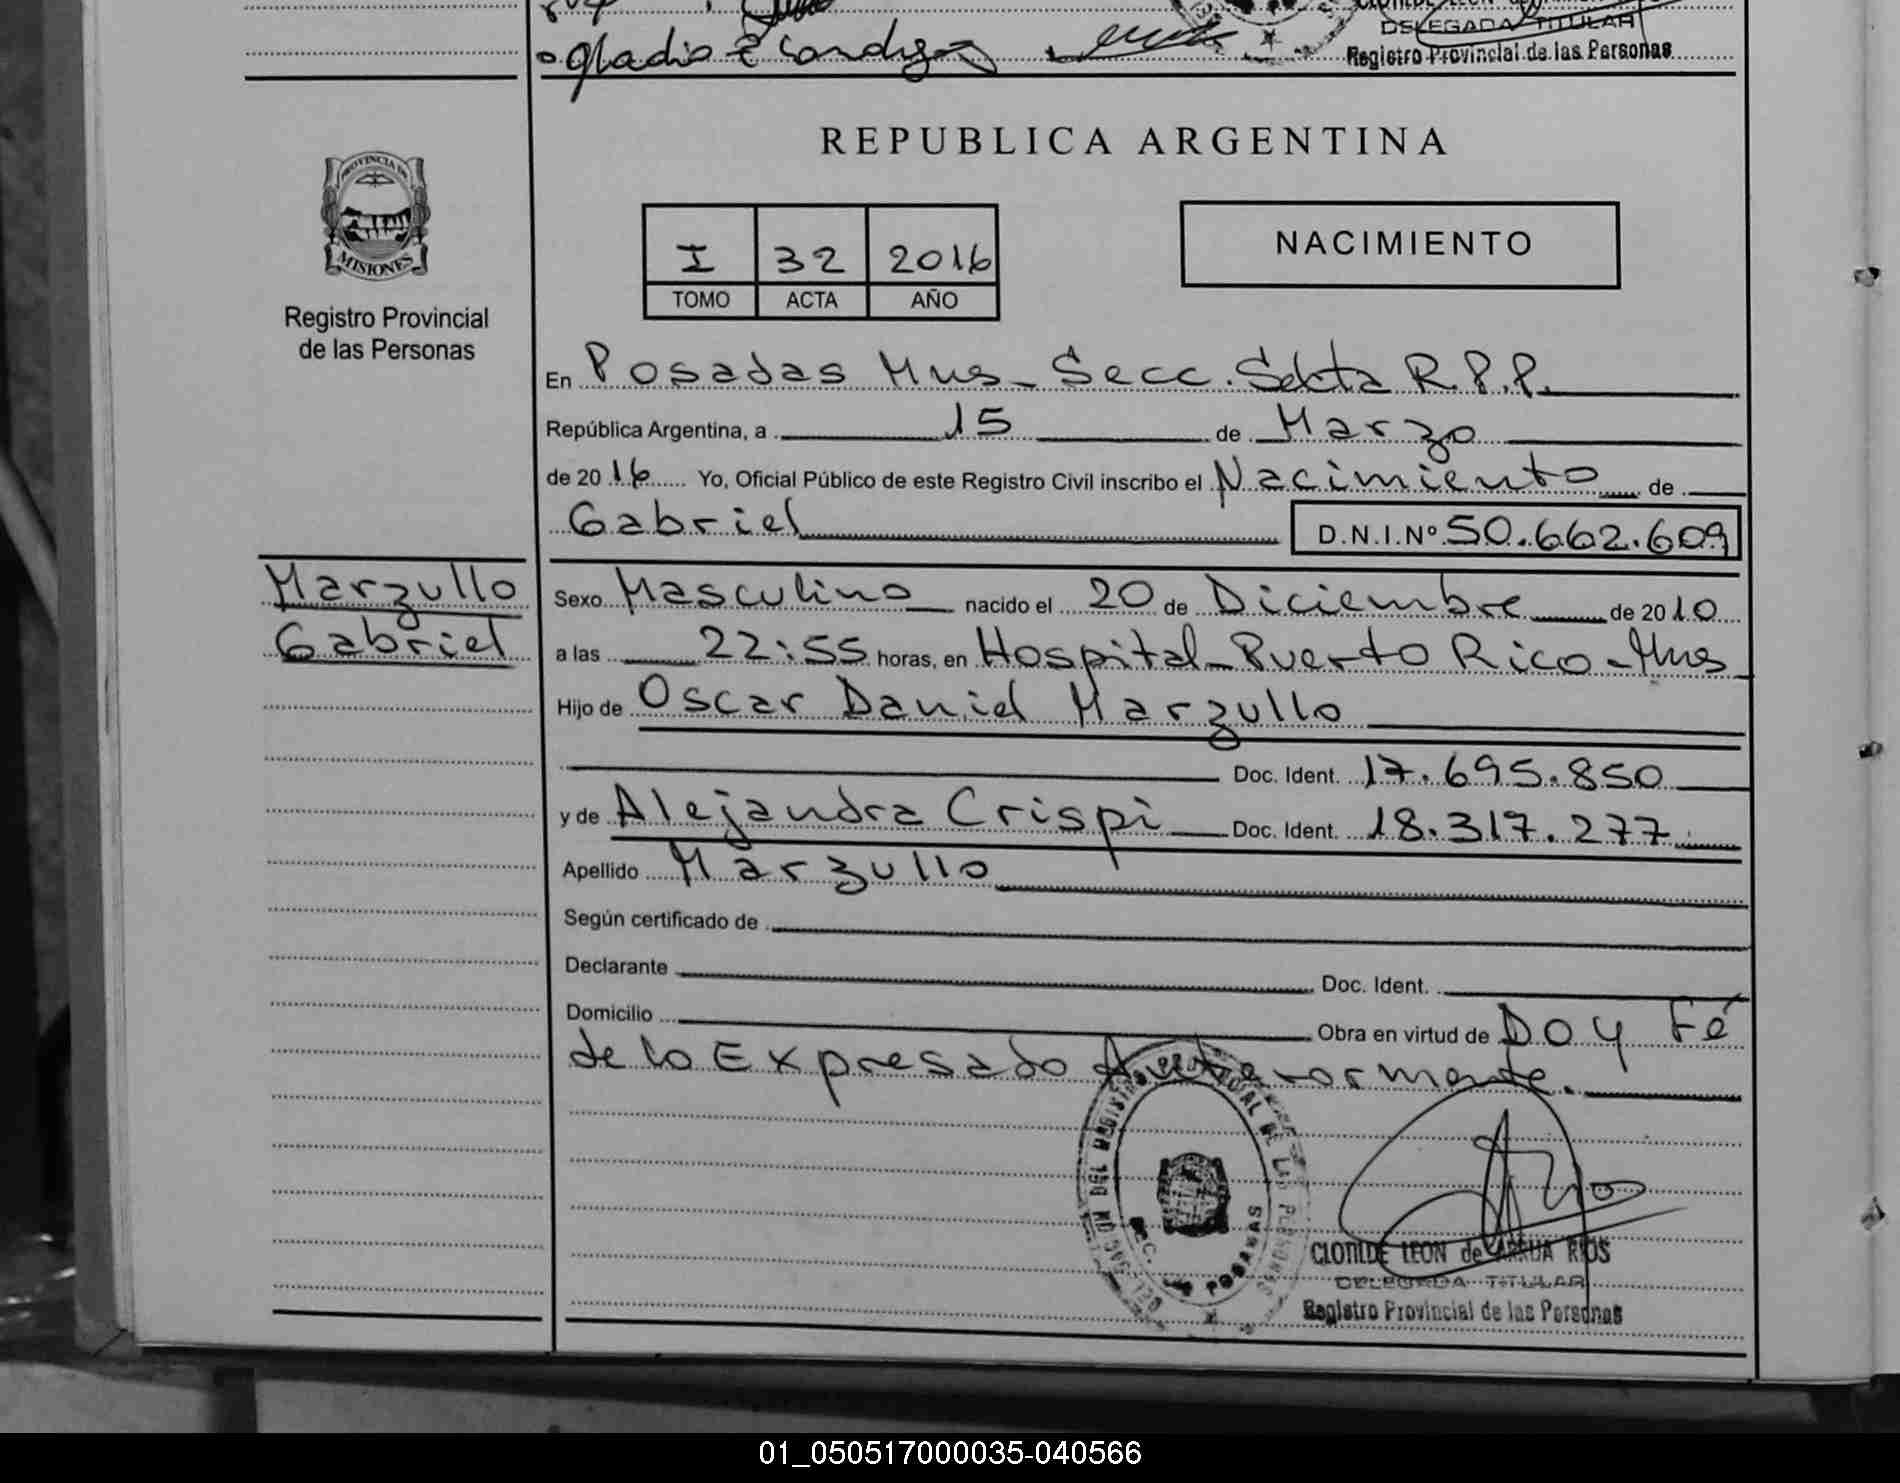 DELEGADA TITULAR
Registro Provincial de las Personas
REPUBLICA ARGENTINA
PROVINCIA DE
MISIONES
Registro Provincial
de las Personas
I 32 2016
TOMO ACTA AÑO
NACIMIENTO
En Posadas Mns - Secc. Sexta R.P.P.
República Argentina, a 15 de Marzo
de 2016 Yo, Oficial Público de este Registro Civil inscribo el Nacimiento de
Gabriel D.N.I.Nº 50.662.609
Marzullo
Gabriel
Sexo Masculino nacido el 20 de Diciembre de 2010
a las 22:55 horas, en Hospital - Puerto Rico - Mns
Hijo de Oscar Daniel Marzullo
Doc. Ident. 17.695.850
y de Alejandra Crispi Doc. Ident. 18.317.277
Apellido Marzullo
Según certificado de
Declarante Doc. Ident.
Domicilio Obra en virtud de Doy Fé
de lo Expresado Anteriormente.
POSADAS
CLOTILDE LEON de ARRUA RIOS
DELEGADA TITULAR
Registro Provincial de las Personas
01_050517000035-040566